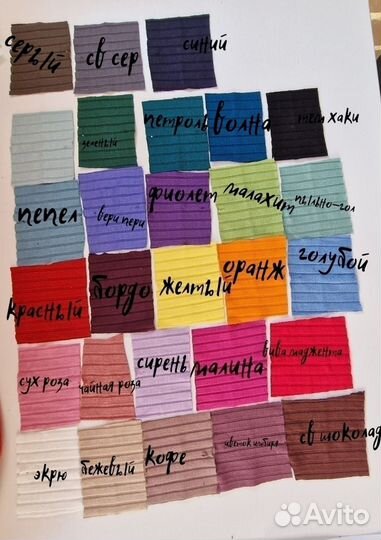 серый
св сер
синий
зеленый
петроль
волна
тем хаки
пепел
вери пери
фиолет
малахит
пыльно-гол
красный
бордо
желтый
оранж
голубой
сух роза
чайная роза
сирень
малина
вива маджента
экрю
бежевый
кофе
цветок имбиря
св шоколад
Avito